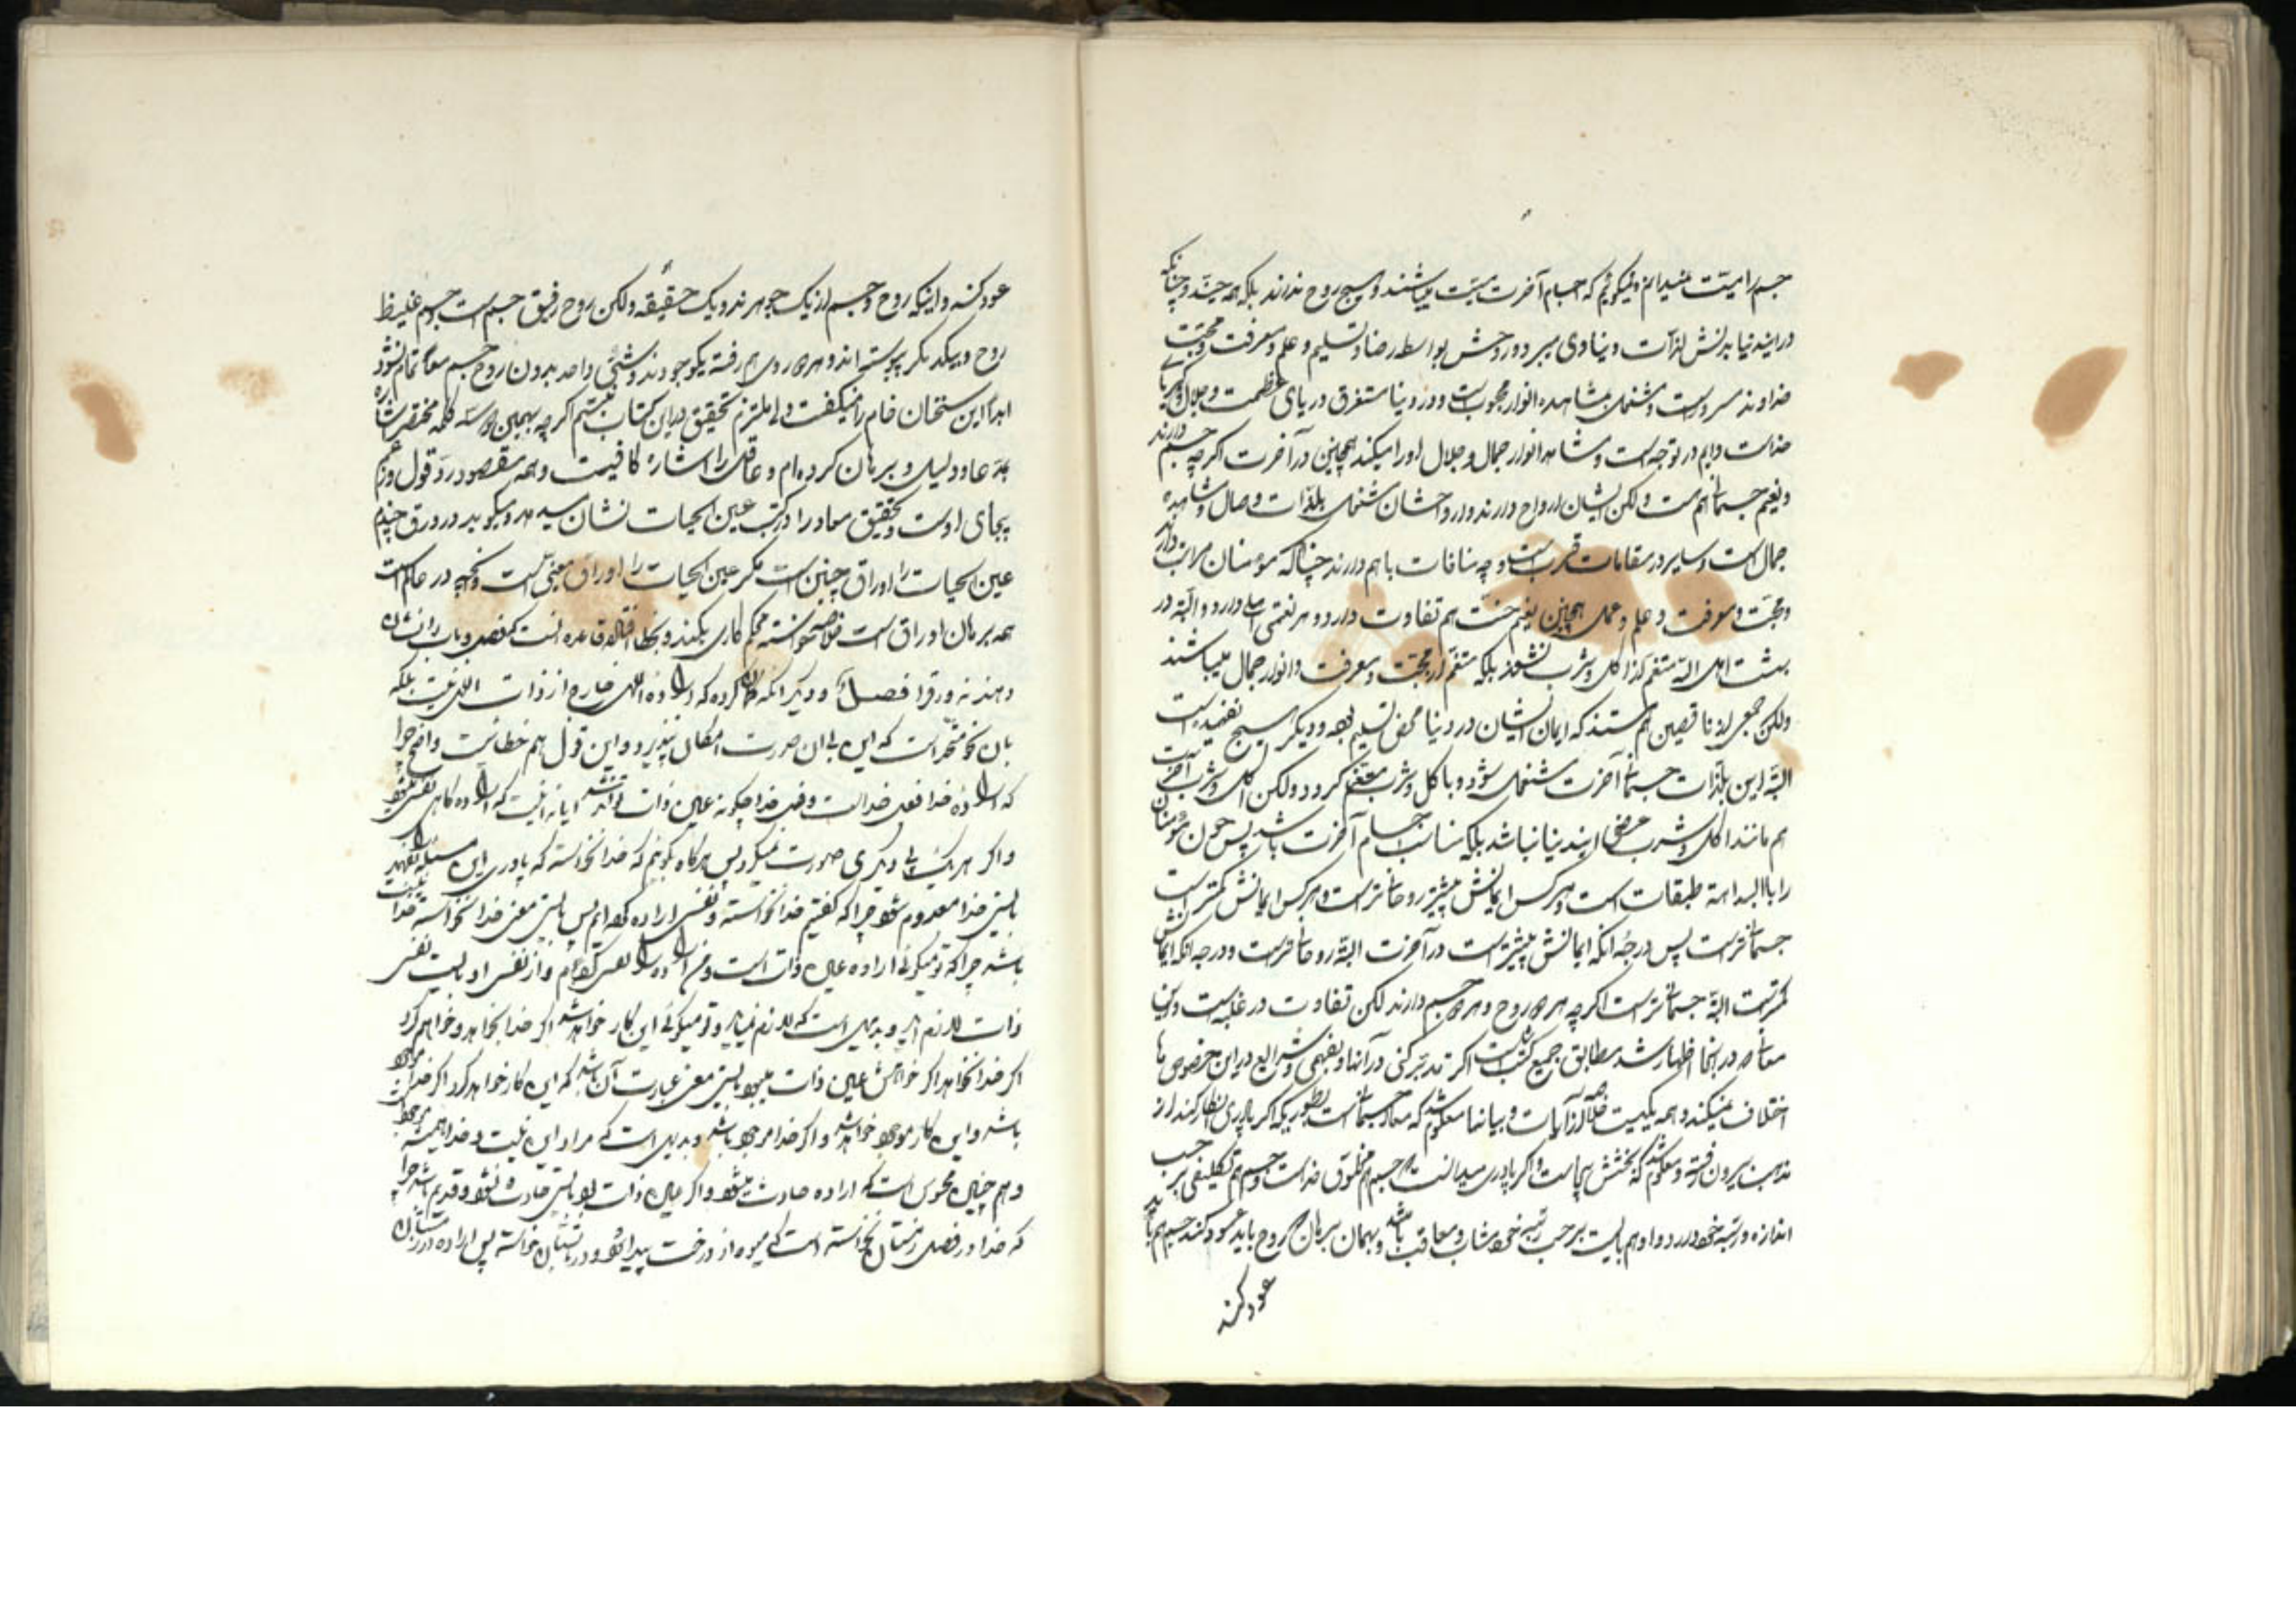 جسم را میّت نمیدانم و نمیگویم که اجسام آخرت میّت میباشند و هیچ روح ندارند بلکه همه حیّند و چنانکه
در این دنیا بدنش لذّات دنیاوی میبرد و روحش بواسطه رضا و تسلیم و علم و معرفت و محبّت
خداوند مسرور است و مشتغل بمشاهده انوار محبوبست و در دنیا مستغرق دریای عظمت و جلال و کبریای
خداست دایم در توجه است و مشاهد انوار جمال و جلال او را میکند همچنین در آخرت اگرچه جسم دارند
و نعیم جسمانی هم هست ولکن ایشان ارواح دارند و ارواحشان مشتغل بلذّات وصال و مشاهده
جمال است و سایر در مقامات قرب است و چه منافات با هم دارند چنانکه مومنان مراتب دارند
و محبّت و معرفت و علم و عمل همچنین نعیم جنّت هم تفاوت دارد و هر نعمتی اهلی دارد و البتّه در
بهشت اهل اللّه متنعّم از اکل و شرب نشوند بلکه متنعّم از محبّت و معرفت و انوار جمال میباشند
ولکن جمعی از ناقصین هم هستند که ایمان ایشان در دنیا محض تسلیم بوده و دیگر هیچ نفهمیده است
البتّه این بلذّات جسمانی آخرت مشتغل شود و باکل و شرب متنعّم گردد ولکن اکل و شرب آخرت
هم مانند اکل و شرب عرضی این دنیا نباشد بلکه مناسب اجسام آخرت باشد پس چون مؤمنان
را بالبداهة طبقات است و هر کس ایمانش بیشتر روحانی‌تر است و هر کس ایمانش کمتر است
جسمانی‌تر است پس درجه آنکه ایمانش بیشتر است در آخرت البتّه روحانی‌تر است و درجه آنکه ایمانش
کمتر است البتّه جسمانی‌تر است اگرچه هر دو روح و هر دو جسم دارند لکن تفاوت در غلبه است و این
معانی که در اینجا اظهار شد مطابق جمیع کتب است اگر تدبّر کنی در آنها و بفهمی و شرایع در این خصوص با
اختلاف نمیکنند و همه یکیست خلاصه از آیات و بیانها معلوم شد که معاد جسمانی است بطوریکه اگر پادری انکار کند از
مذهب بیرون رفته و معلوم شد که بحثش بیجاست و اگر پادری میدانست که جسم هم مخلوق خداست و جسم هم تکلیفی بر حسب
اندازه و رتبه خود دارد و او هم بایست بر حسب رتبه خود مثاب و معاقب باشد و بهمان برهان که روح باید عود کند جسم هم باید
عود کند
عود کند و اینکه روح و جسم از یک جوهرند و یک حقیقه ولکن روح رقیق جسم است و جسم غلیظ
روح و بیکدیگر پیوسته‌اند و هر دو روی هم رفته یک موجودند و شیٔی واحد بدون روح جسم معا تمام نشود
ابداً این سخنان خام را نمیگفت ولی ملتزم تحقیق در این کتاب نیستم اگرچه بهمین دو سه کلمه مختصر اشاره
بمدّعا و دلیل و برهان کرده‌ام و عاقل را اشاره کافیست و همه مقصود ردّ قول و زعم
بیجای اوست و تحقیق معاد را در کتب عین الحیات نشان میدهد و میگوید در ورق چندم
عین الحیات را اوراق چنین است مگر عین الحیات را اوراق معیّنی است و آنچه در عالم است
همه بر همان اوراق است خلاصه خواسته محکم کاری بکند و بخطا افتاده قاعده آنست که فصل و باب را نشان
دهند نه ورق را فصل و دیگر آنکه گمان کرده که اراده اللهی خارج از ذات اللهی نیست بلکه
بان نحو متّحد است که این بی آن صورت امکان نپذیرد و این قول هم خطائیست واضح چرا
که اراده خدا فعل خداست و فعل خدا چگونه عین ذات تواند شد آیا نه اینست که اراده گاهی نفی میشود
و اگر هر یک بی دیگری صورت نمیگیرد پس هرگاه گوئیم که خدا نخواسته که پادری این مسئله را بفهمد
بایستی خدا معدوم شود چرا که گفتیم خدا نخواسته و نفی اراده کرده‌ایم پس بایستی معنی خدا نخواسته خدا نیست
باشد چرا که تو میگوئی اراده عین ذات است و من اراده را نفی کرده‌ام و از نفی او بایست نفی
ذات لازم آید و بدیهی است که لازم نمیآید و تو میگوئی این کار خواهد شد اگر خدا بخواهد و خواهم کرد
اگر خدا بخواهد اگر خواهش عین ذات میبود بایستی معنی عبارت آن باشد که این کار خواهد کرد اگر خدا موجود
باشد و این کار موجود خواهد شد اگر خدا موجود باشد و بدیهی است که مراد این نیست و خدا همیشه موجود است
و هم چنین محسوس است که اراده حادث میشود و اگر عین ذات بود بایستی حادث نشود و قدیم باشد چرا
که خدا در فصل زمستان نخواسته است که میوه از درخت پیدا شود و در تابستان خواسته پس اراده در زمستان